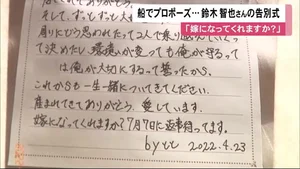 船でプロポーズ… 鈴木 智也さんの告別式
「嫁になってくれますか?」
くれてありがとう。
そして、ずっとずっと大
周りにどう思われたって2人で乗り越えていくっ
て決めたし、環境いが変っても俺が守るって
は俺が大切にするって誓ったからS。
これからも一生一緒についてきてください。
産まれてきてありがとう、愛しています。
嫁になってくれますか?7月7に返事待ってます。
by とも 2022.4.23